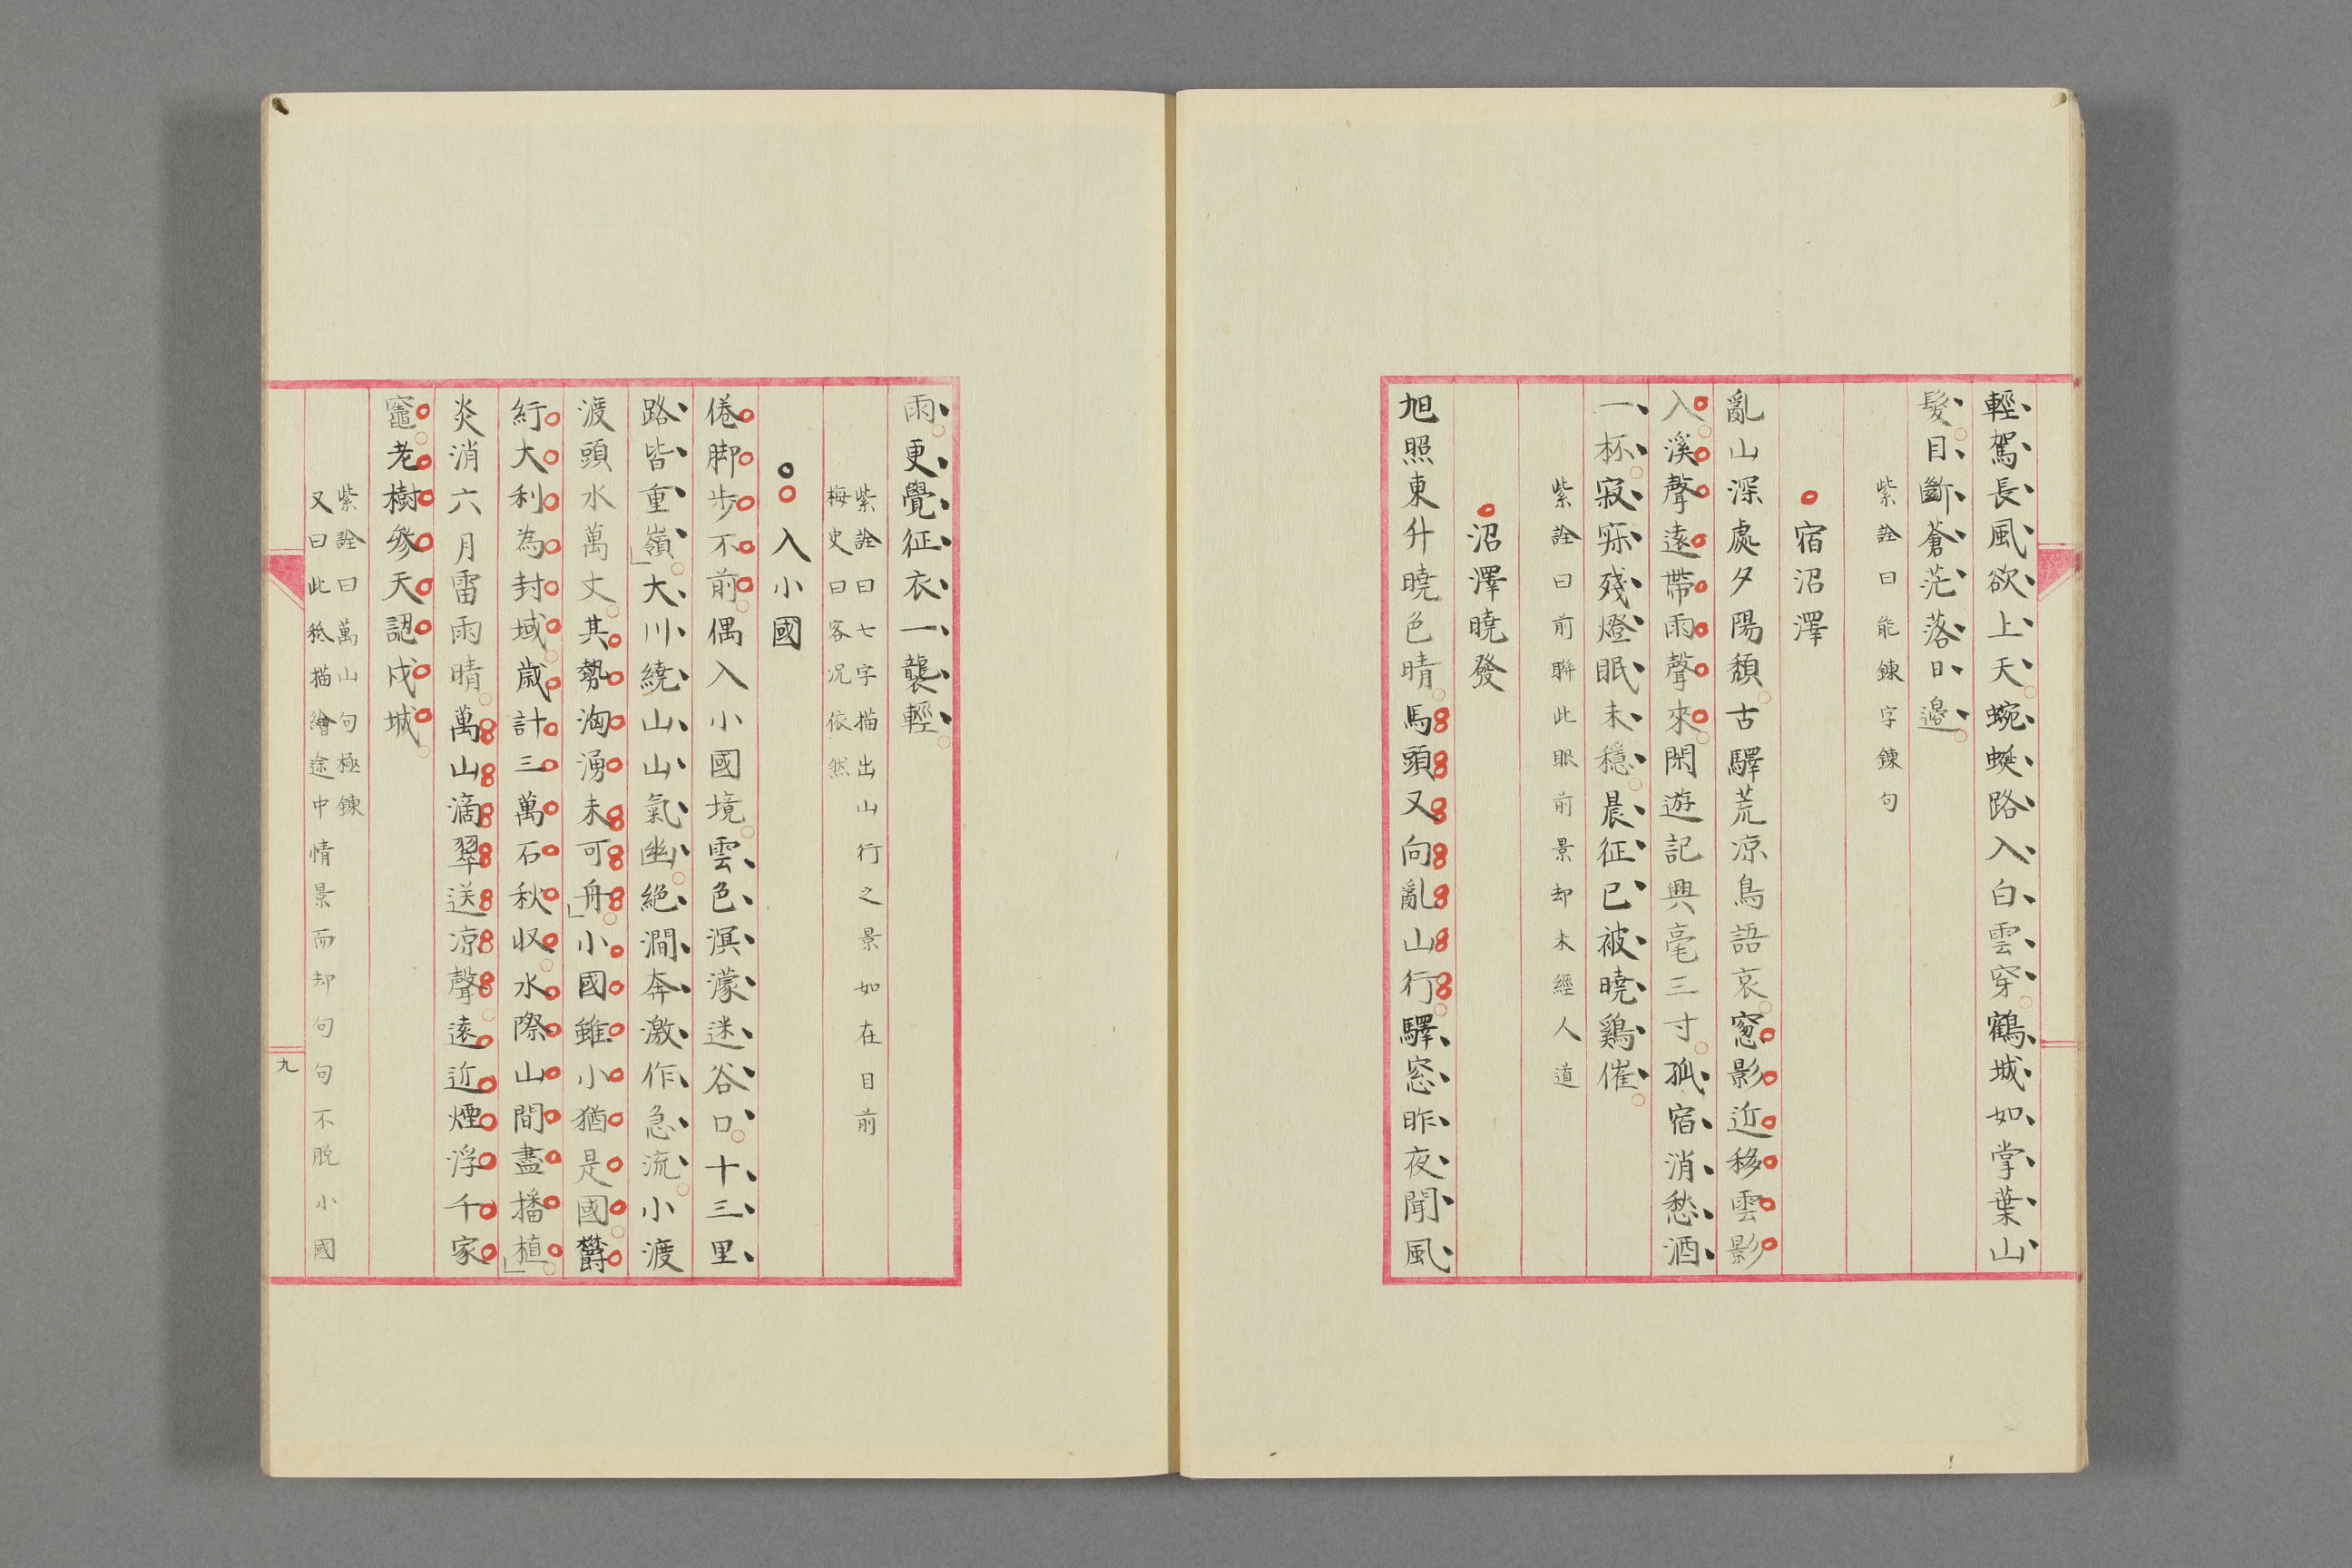 輕駕長風欲上天蜿蜒路入白雲穿鶴城如掌葉山
髮目斷蒼茫落日邊
紫詮曰能鍊字鍊句
宿沼澤
亂山深處夕陽頹古驛荒凉鳥語哀窻影近移雲影
入溪聲遠帶雨聲來閑遊記興毫三寸孤宿消愁酒
一杯寂寐殘燈眠未穩晨征已被曉鷄催
紫詮曰前聯此眼前景却未經人道
沼澤曉發
旭照東升曉色晴馬頭又向亂山行驛窓昨夜聞風
雨更覺征衣一襲輕
紫詮曰七字描出山行之景如在目前
梅史曰客况依然
入小國
倦脚步不前偶入小國境雲色溟濛迷谷口十三里
路皆重嶺大川繞山山氣幽絕澗奔激作急流小渡
渡頭水萬丈其勢洶湧未可舟小國雖小猶是國欝
紆大利為封域歲計三萬石秋収水際山間盡播植
炎消六月雷雨晴萬山滴翠送凉聲遠近煙浮千家
竈老樹參天認戍城
紫詮曰萬山句極鍊
又曰此種描繪途中情景而却句句不脫小國
九